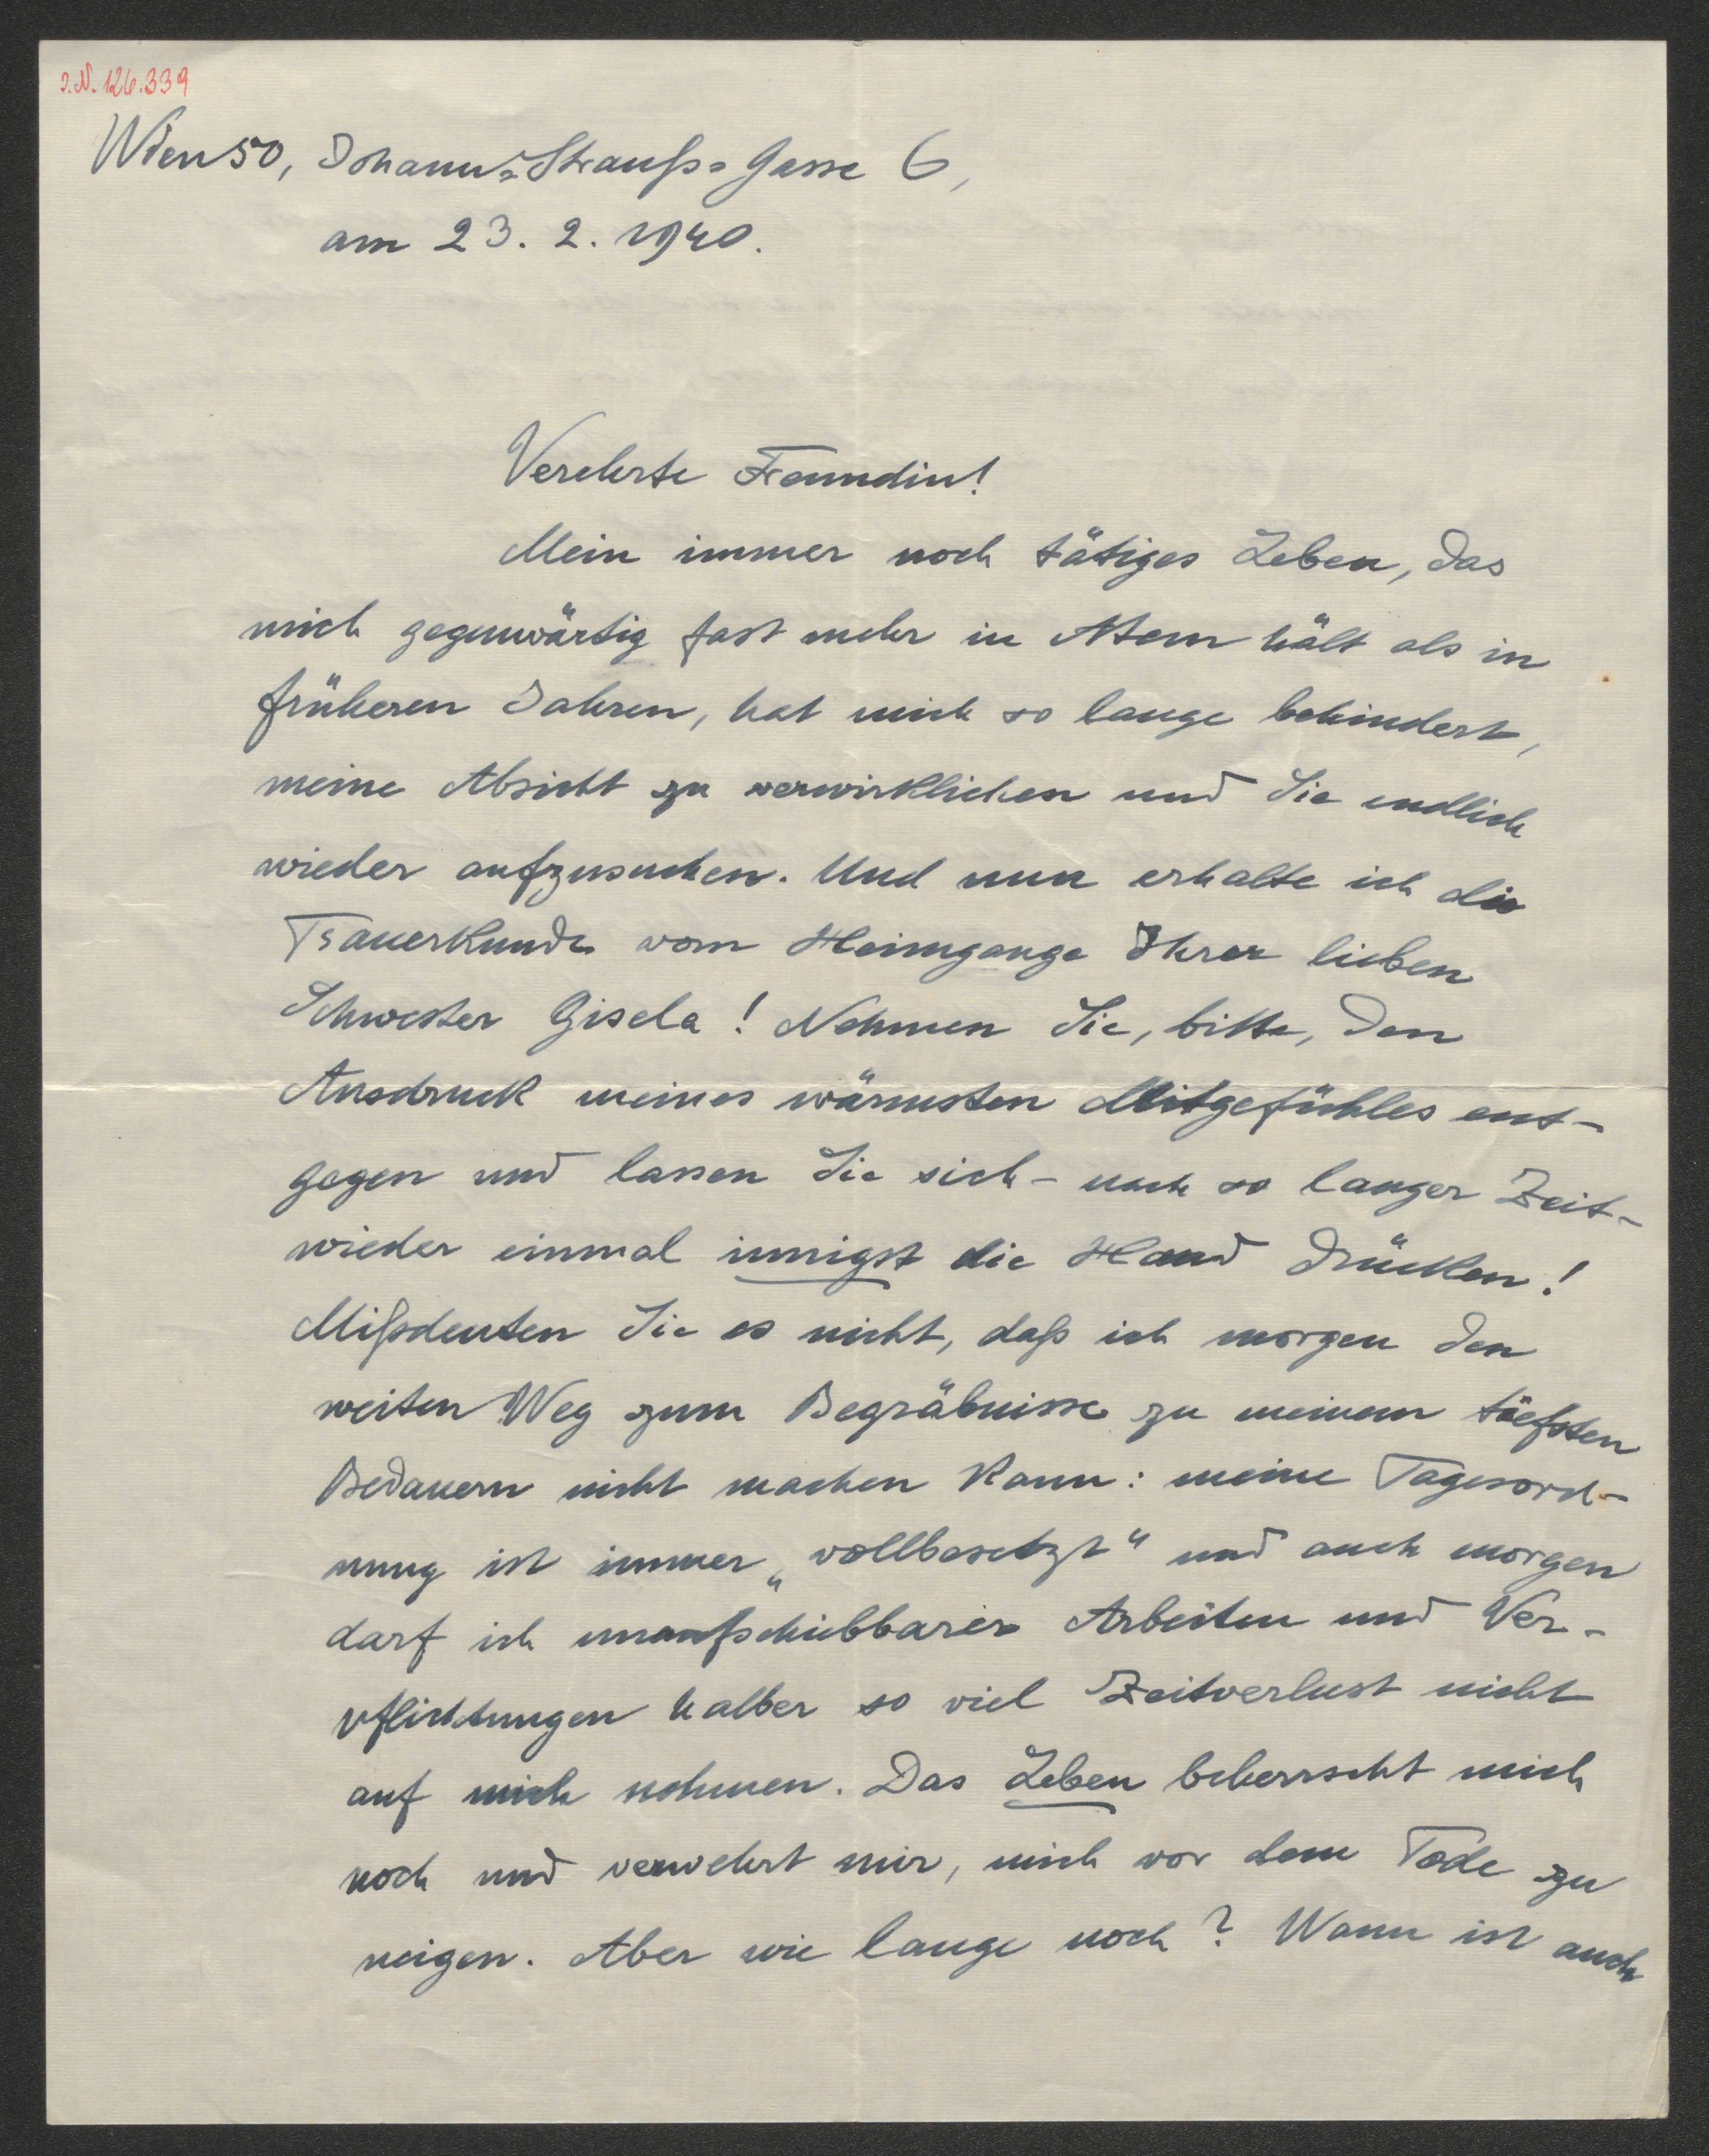 I.N. 126.339
Wien 50, Johann-Strauß-Gasse 6,
am 23. 2. 1940.
Verehrte Freundin!
Mein immer noch tätiges Leben, das
mich gegenwärtig fast mehr in Atem hält als in
früheren Jahren, hat mich so lange behindert,
meine Absicht zu verwirklichen und Sie endlich
wieder aufzusuchen. Und nun erhalte ich die
Trauerkunde vom Heimgange Ihrer lieben
Schwester Gisela! Nehmen Sie, bitte, den
Ausdruck meines wärmsten Mitgefühles ent-
gegen und lassen Sie sich - nach so langer Zeit -
wieder einmal innigst die Hand drücken!
Mißdeuten Sie es nicht, daß ich morgen den
weiten Weg zum Begräbnisse zu meinem tiefsten
Bedauern nicht machen kann: meine Tagesord-
nung ist immer „vollbesetzt“ und auch morgen
darf ich unaufschiebbarer Arbeiten und Ver-
pflichtungen halber so viel Zeitverlust nicht
auf mich nehmen. Das Leben beherrscht mich
noch und verwehrt mir, mich vor dem Tode zu
neigen. Aber wie lange noch? Wann ist auch